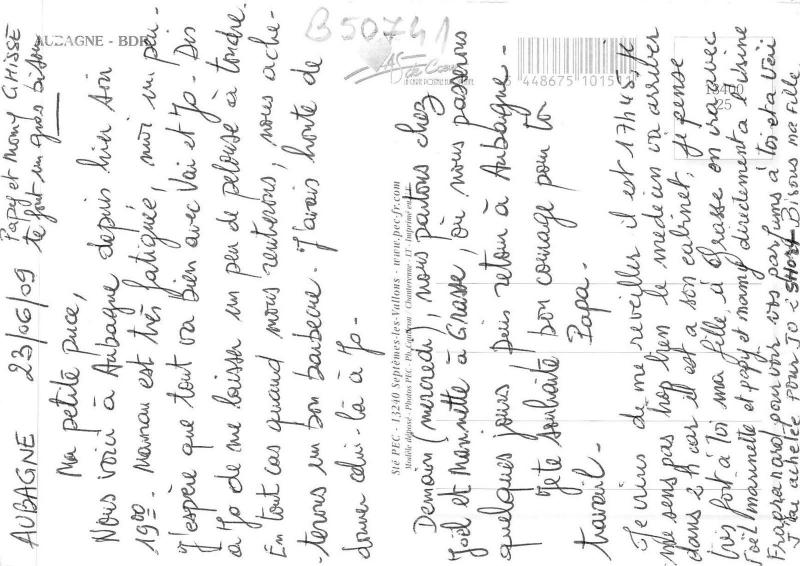 AUBAGNE 23/06/09
Papy et Mamy GHISSE
te font un gros bisou
Ma petite puce,
Nous voici à Aubagne depuis hier soir
19ºº. Maman est très fatiguée, moi un peu.
J'espère que tout va bien avec Vai et Jo. Dis
à Jo de me laisser un peu de pelouse à tondre.
En tout cas quand nous rentrerons, nous achè-
-terons un bon barbecue. J'avais honte de
donner celui-là à Jo.
AUBAGNE - BDR
B50741
AS de Coeur
LA CARTE POSTALE
448675 1015
13400
25
Sté PEC - 13240 Septèmes-les-Vallons - www.pec-fr.com
Modèle déposé - Photos PEC - Ph. Chanterenne - IT - Imprimé en
Demain (mercredi), nous partons chez
Joël et Marinette à Grasse, où nous passerons
quelques jours puis retour à Aubagne -
Je te souhaite bon courage pour ton
travail - Papa -
Je viens de me réveiller il est 17H45, je
me sens pas trop bien le médecin va arriver
dans 2 h car il est à son cabinet, je pense
très fort à toi ma fille, à Grasse on ira avec
Joël marinette et papy et mamy directement a l'usine
Fragranard pour voir vos parfums à toi et a Vai
J'ai achetée pour JO 2 short Bisous ma fille.